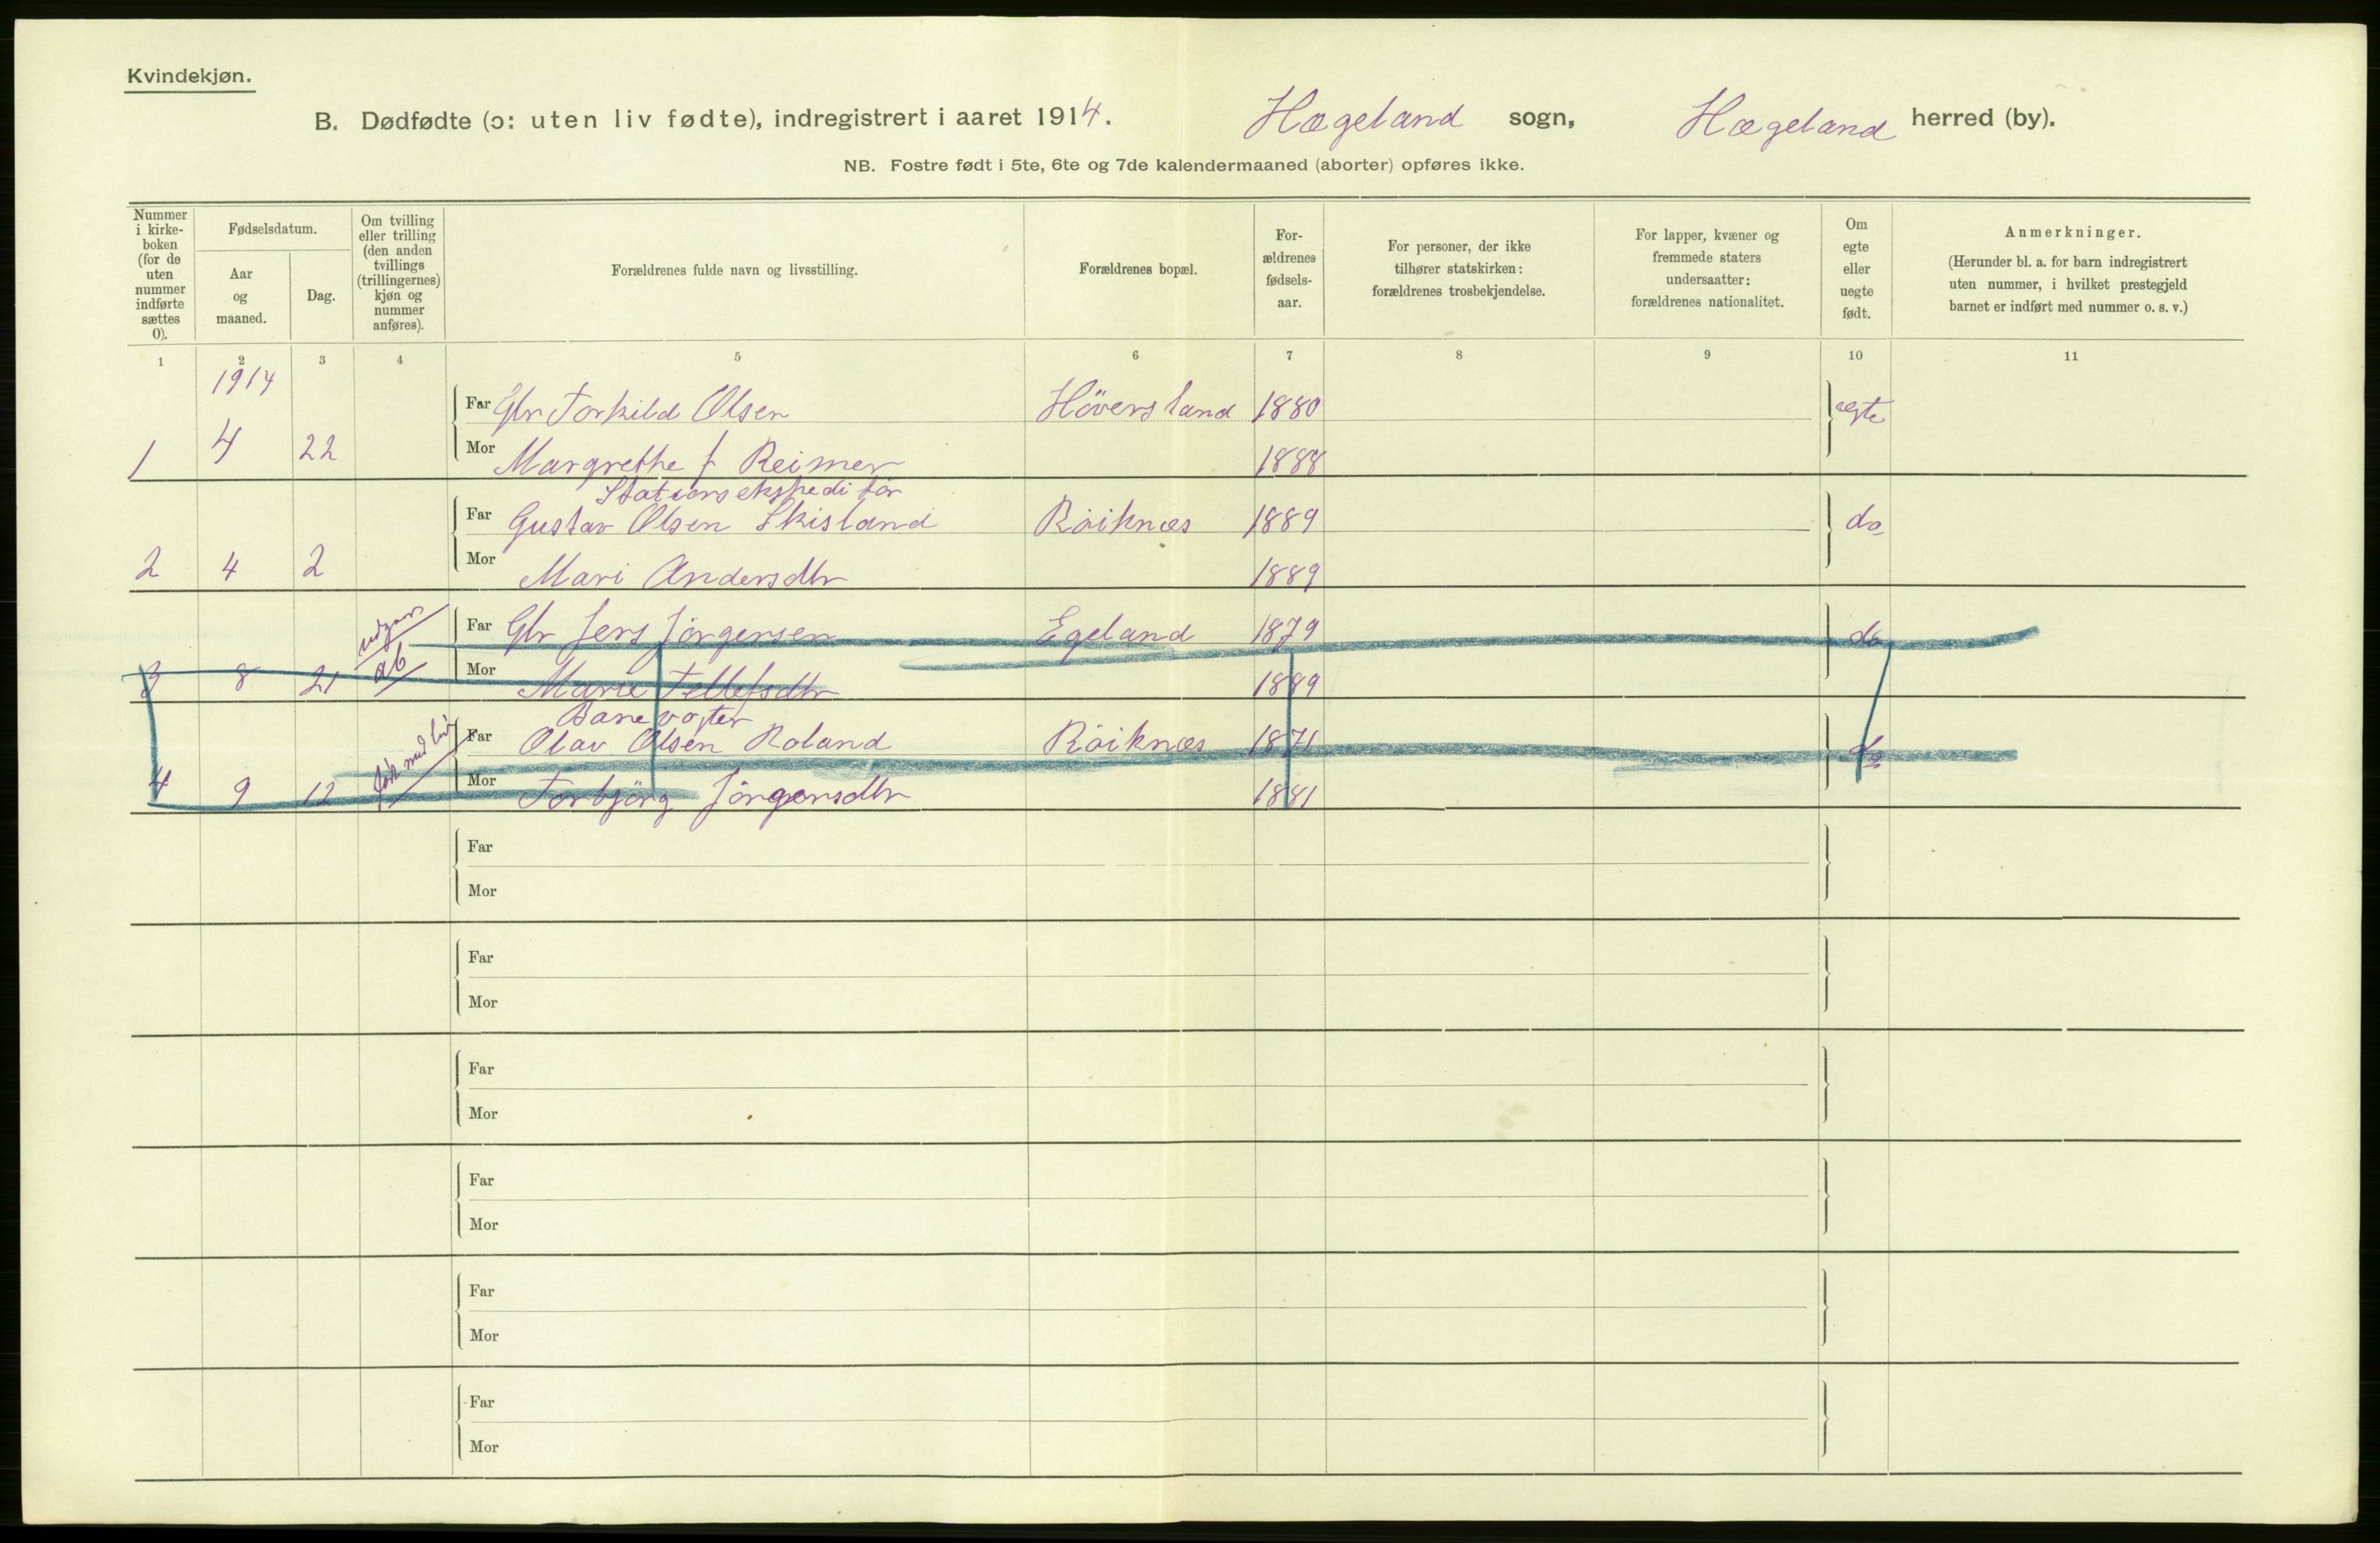 Kvindekjøn.
B. Dødfødte (ɔ: uten liv fødte), indregistrert i aaret 1914. Hægeland sogn, Hægeland herred (by).
NB. Fostre født i 5te, 6te og 7de kalendermaaned (aborter) opføres ikke.
Nummer i kirke-boken (for de uten nummer indførte sættes 0).
Fødselsdatum.
Aar og maaned.
Dag.
Om tvilling eller trilling (den anden tvillings (trillingernes) kjøn og nummer anføres).
Forældrenes fulde navn og livsstilling.
Forældrenes bopæl.
For-ældrenes fødsels-aar.
For personer, der ikke tilhører statskirken: forældrenes trosbekjendelse.
For lapper, kvæner og fremmede staters undersaatter: forældrenes nationalitet.
Om egte eller uegte født.
Anmerkninger.
(Herunder bl. a. for barn indregistrert uten nummer, i hvilket prestegjeld barnet er indført med nummer o. s. v.)
1 2 3 4 5 6 7 8 9 10 11
1914
Far Gbr Torkild Olsen Höversland 1880 egte
1 4 22 Mor Margrethe f Reimer 1888
Stationsekspeditör
Far Gustav Olsen Skisland Röiknæs 1889 do
2 4 2 Mor Mari Andersdtr 1889
udgaar
Far Gbr Jens Jörgensen Egeland 1879 do
3 8 21 ab Mor Marie Tellefsdtr 1889
Banevogter
Far Olav Olsen Roland Röiknæs 1871 do
født med liv
4 9 12 Mor Torbjörg Jörgensdtr 1881
Far
Mor
Far
Mor
Far
Mor
Far
Mor
Far
Mor
Far
Mor